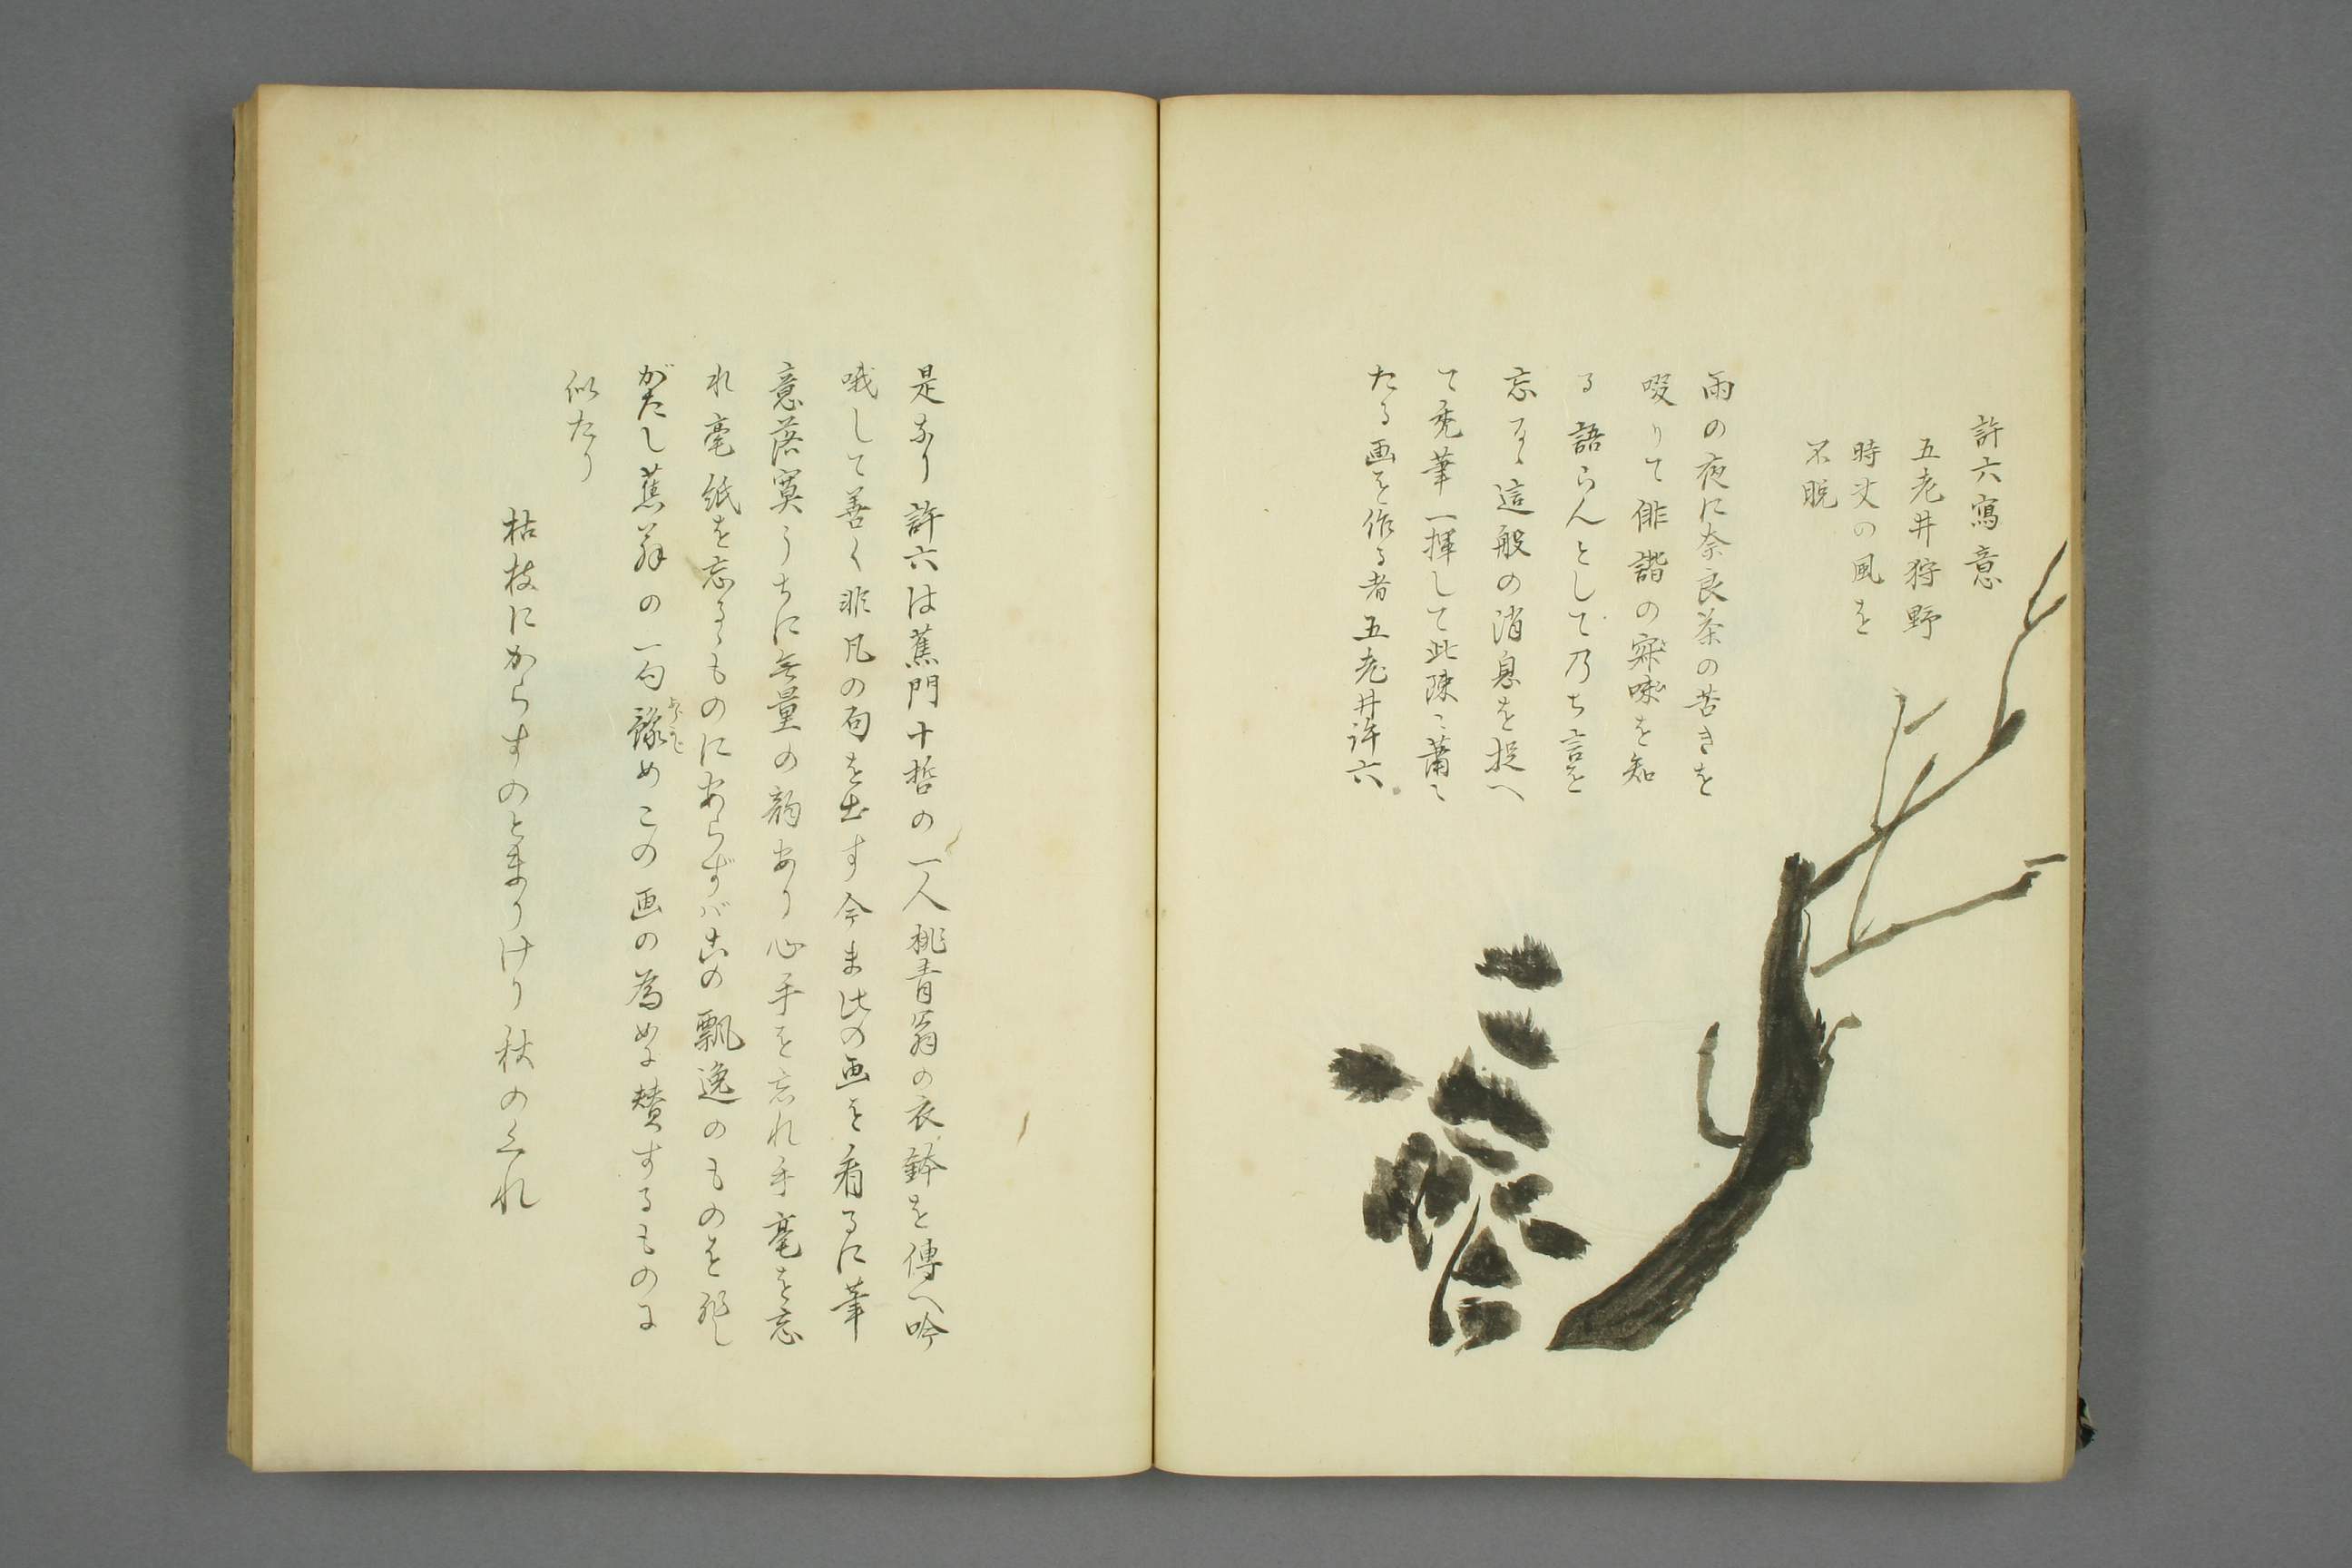 許六寫意
五老井狩野
時丈の風を
不脱
雨の夜に奈良茶の苦きを
啜りて俳諧の寂味を知
る語らんとして乃ち言を
忘るゝ這般の消息を捉へ
て禿筆一揮して此疎〻蕭〻
たる画を作る者五老井許六
是なり許六は蕉門十哲の一人桃青翁の衣鉢を傳へ吟
哦して善く非凡の句を出す今ま此の画を看るに筆
意落寞うちに無量の韵あり心手を忘れ手毫を忘
れ毫紙を忘るゝものにあらずバ此の飄逸のものを形し
がたし蕉翁の一句豫めこの画の為めに賛するものに
似たり
枯枝にからすのとまりけり秋のくれ